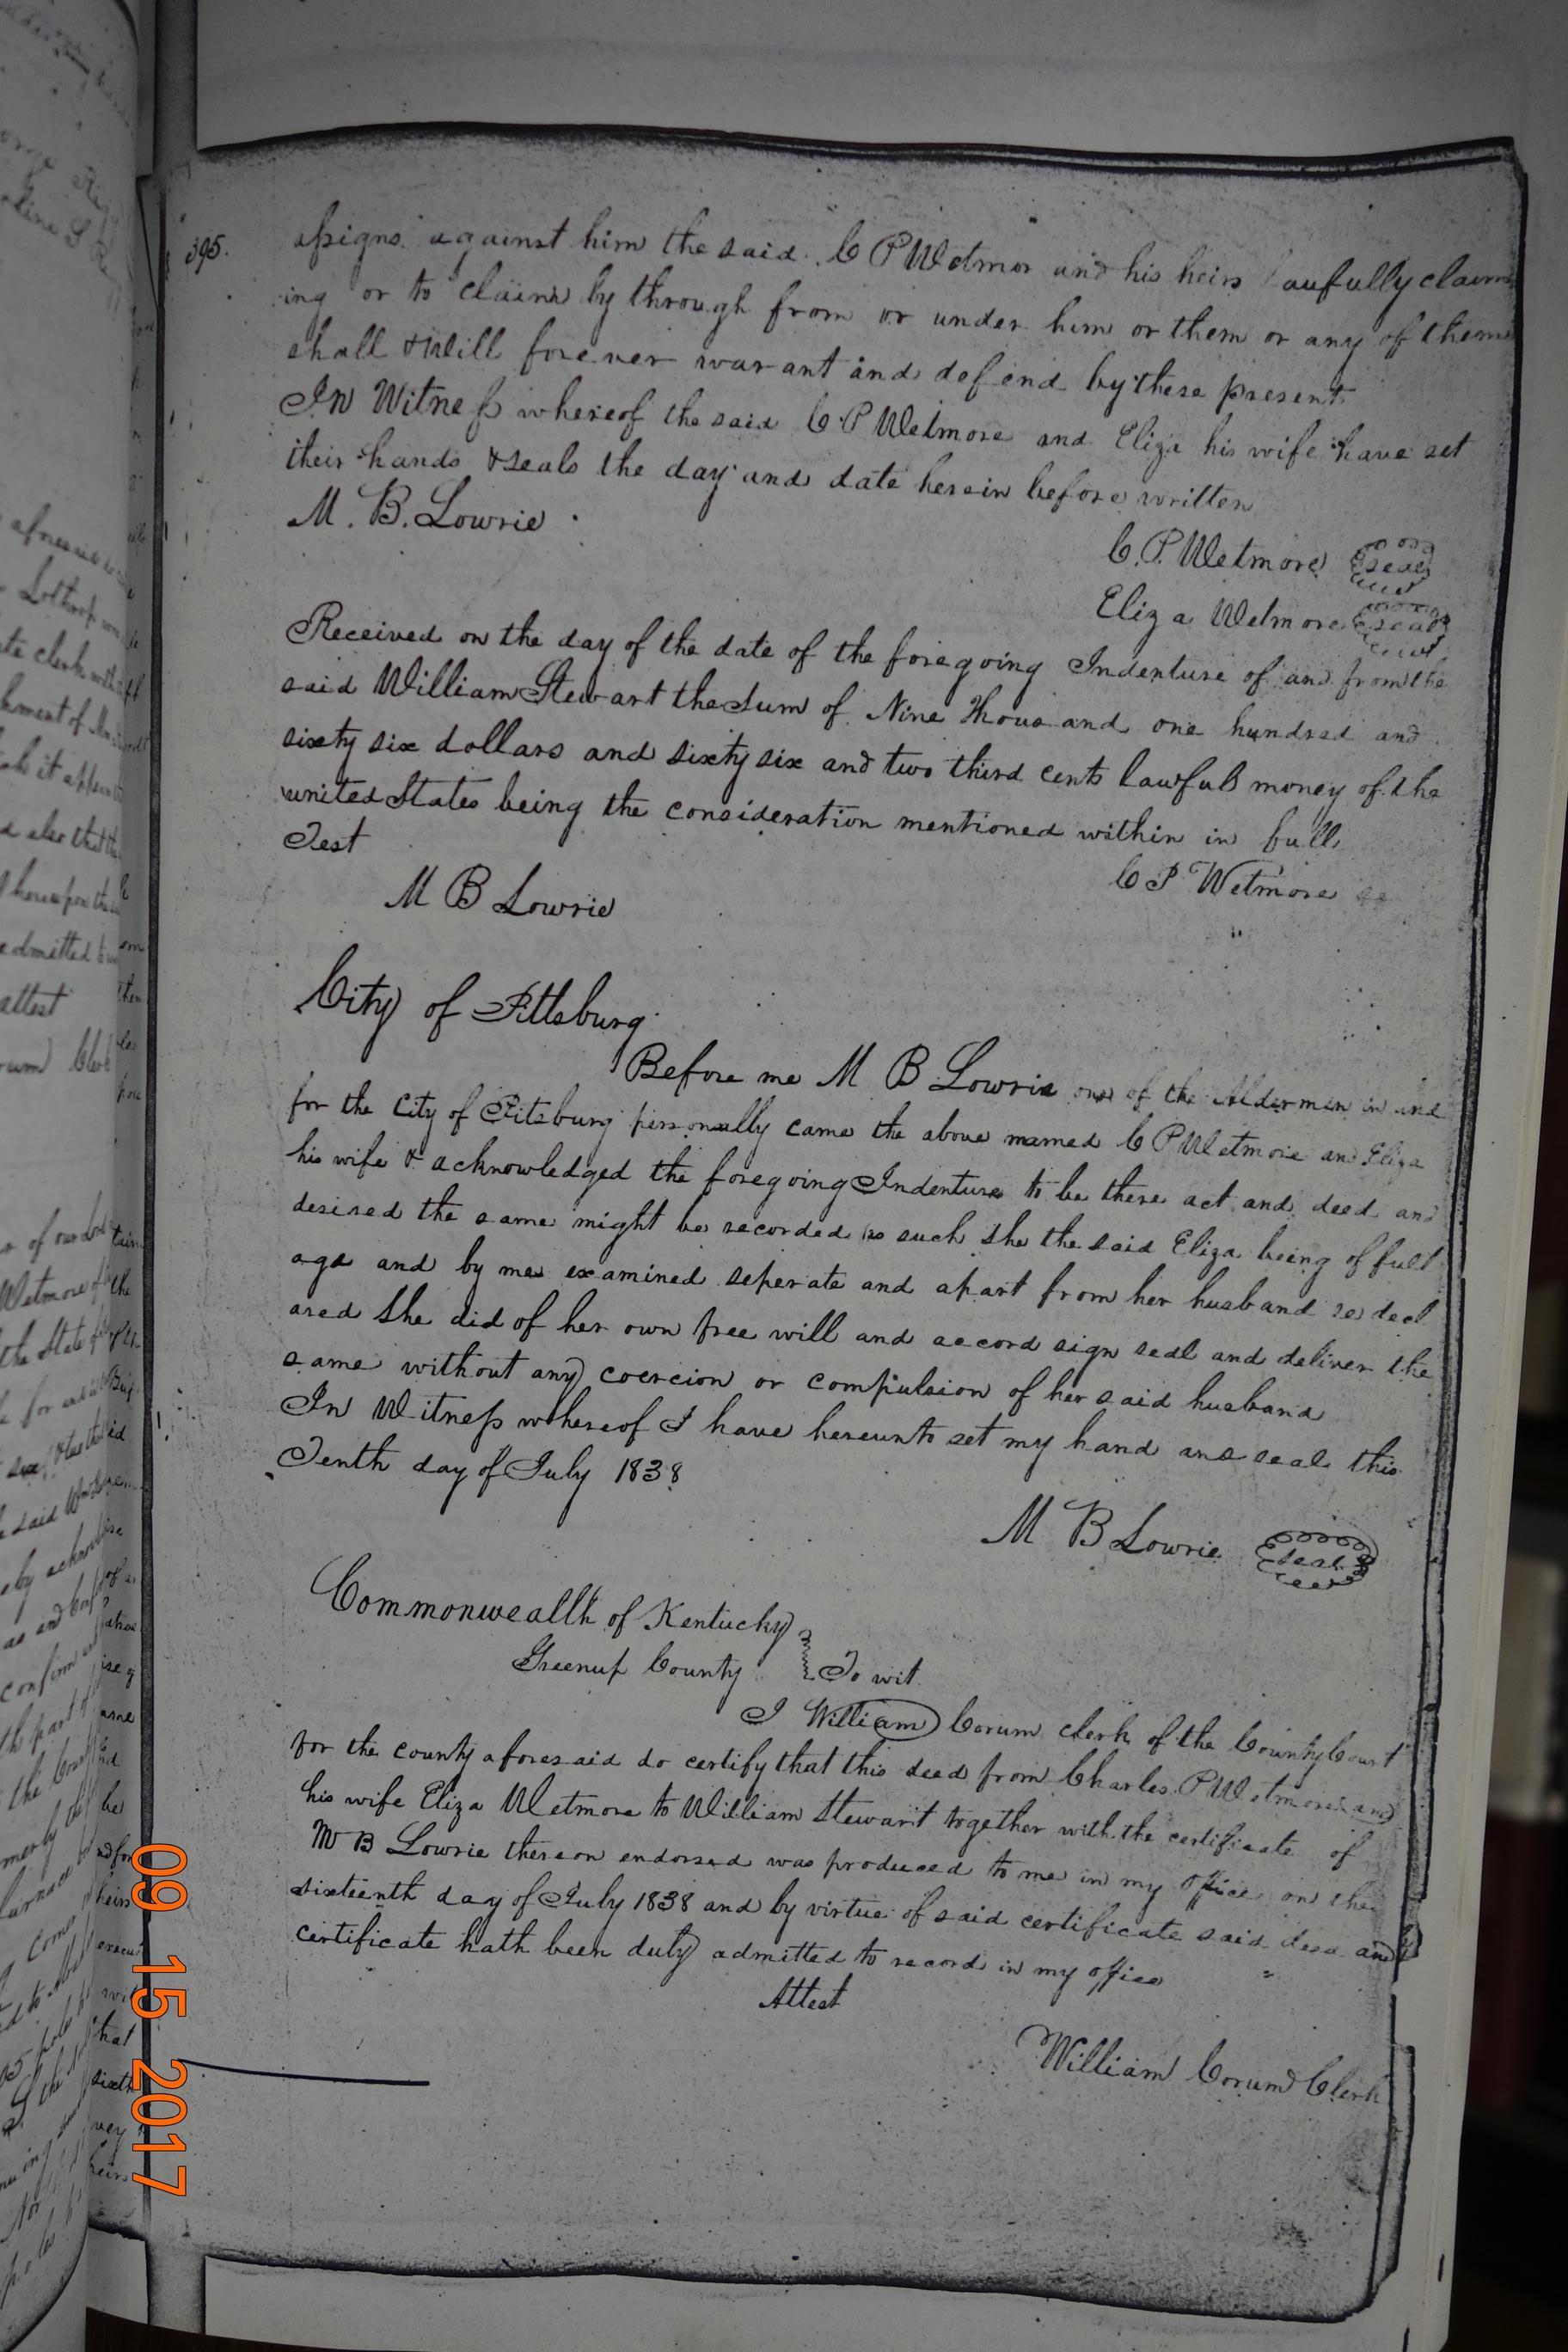 395.
assigns against him the said C P Wetmor and his heirs lawfully claim
ing or to claim by through from or under him or them or any of them
shall & will forever warant and defend by these presents
In Witness whereof the said C P Wetmore and Eliza his wife have set
their hands & seals the day and date herein before written
M. B. Lowrie
C. P. Wetmore seal
Eliza Wetmore seal
Received on the day of the date of the foregoing Indenture of and from the
said William Stewart the Sum of Nine Thousand one hundred and
sixty six dollars and sixty six and two third cents lawful money of the
united States being the consideration mentioned within in full
Test
C P Wetmore
M B Lowrie
City of Pittsburg
Before me M B Lowrie one of the Aldermen in and
for the City of Pitsburg personally came the above named C P Wetmore and Eliza
his wife & acknowledged the foregoing Indenture to be there act and deed and
desired the same might be recorded as such she the said Eliza being of full
age and by me examined seperate and apart from her husband so decl
ared She did of her own free will and accord sign seal and deliver the
same without any coercion or compulsion of her said husband
In Witness whereof I have hereunto set my hand and seal this
Tenth day of July 1838
M B Lowrie seal
Commonwealth of Kentucky
Greenup County To wit
I William Corum clerk of the County Court
for the county aforesaid do certify that this deed from Charles P Wetmore and
his wife Eliza Wetmore to William Stewart together with the certificate of
M B Lowrie thereon endorsed was produced to me in my office on the
sixteenth day of July 1838 and by virtue of said certificate said deed and
certificate hath been duly admitted to record in my office
Attest
William Corum Clerk
09 15 2017